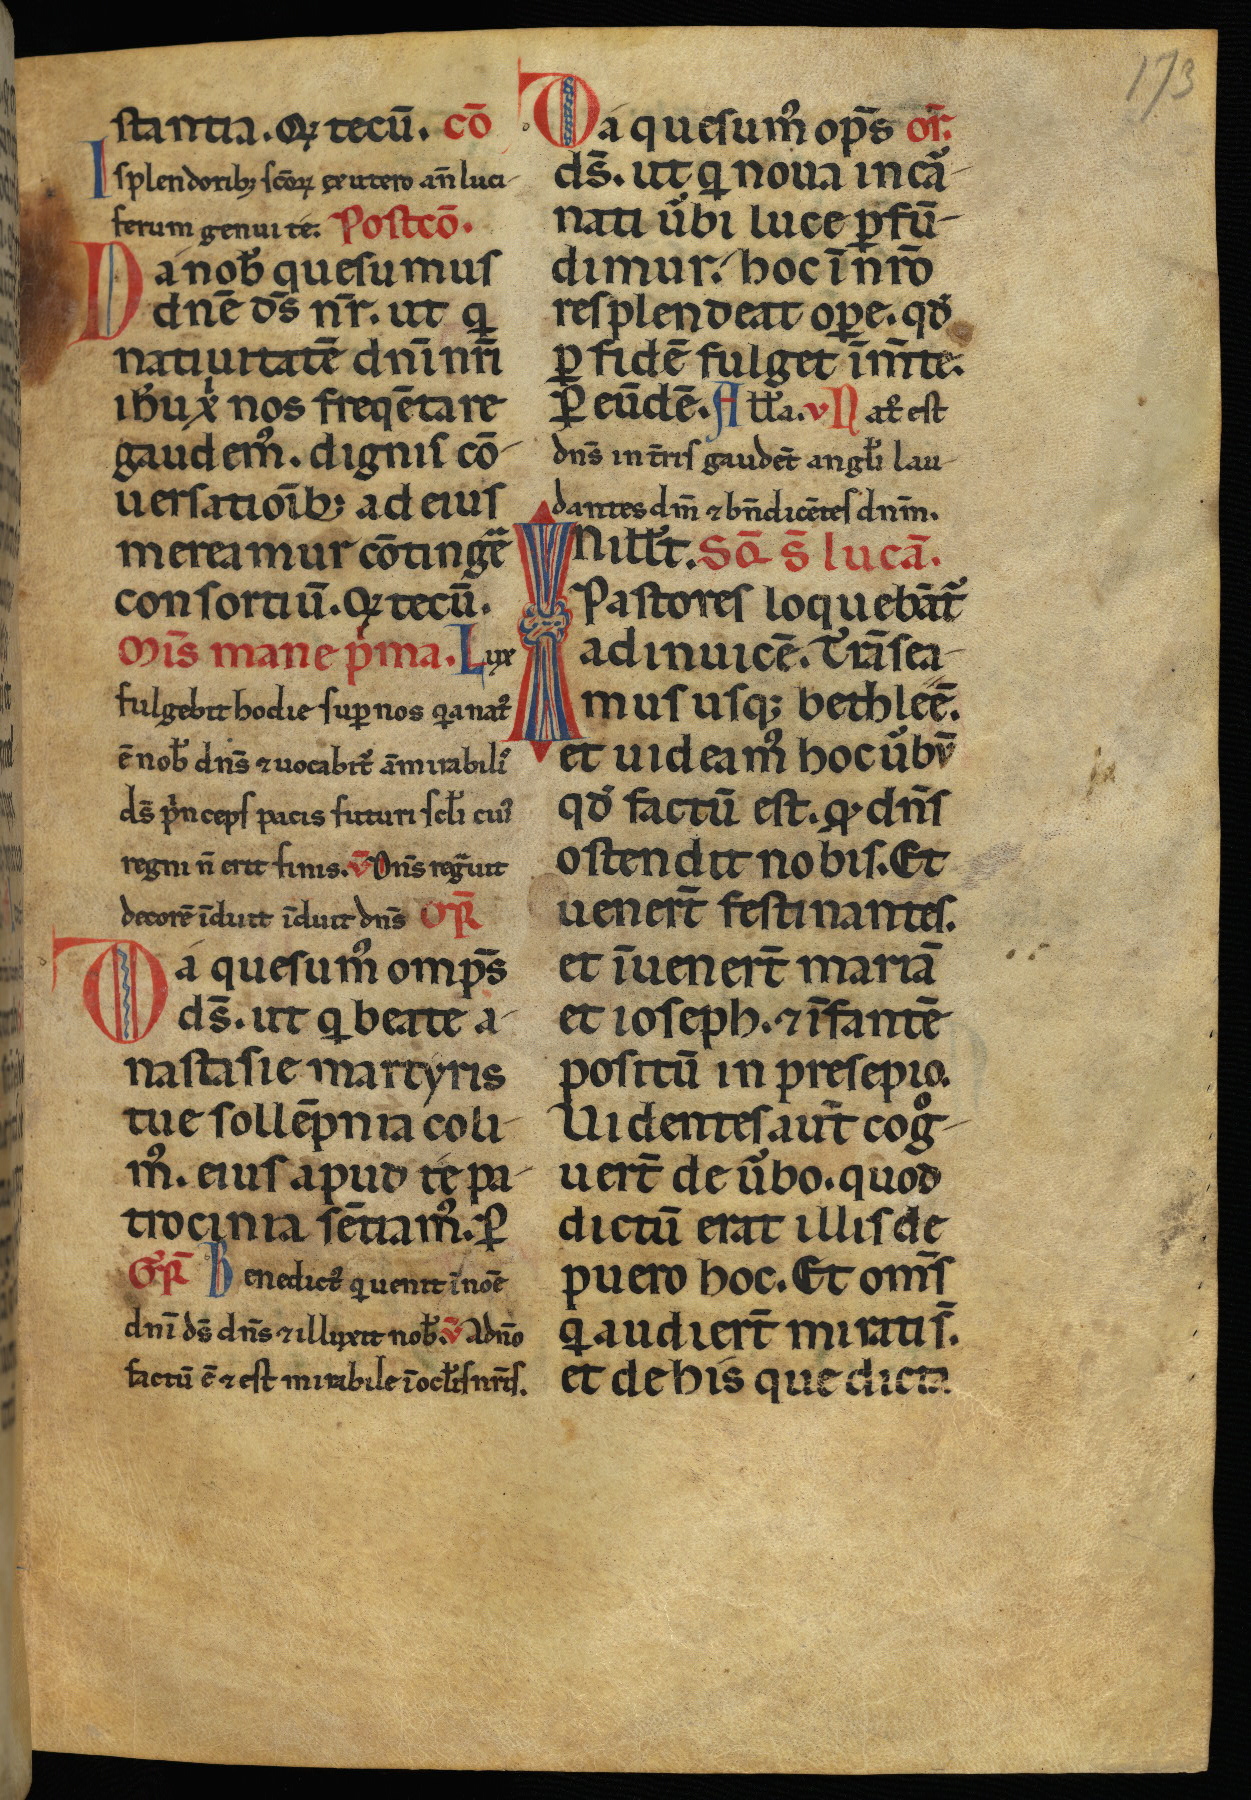 173
stantia. Qꝫ tecū. cō
I splendoribꝫ scōꝝ ex utero an̄ luci-
ferum genui te. Postcō.
Da nob̄ quesumus
dn̄e ds̄ nr̄. ut q
natiuitatē dn̄i nr̄i
ih̄u xp̄i nos freqētare
gaudemꝰ. dignis cō-
uersatiōibꝫ ad eius
mereamur cōtingē
consortiū. Qꝫ tecū.
Mīs mane pͥma. Lux
fulgebit hodie suꝑ nos qa natꝰ
ē nob̄ dn̄s ⁊ uocabit᷑ āmirabilꝭ
ds̄ pͥnceps pacis futuri scl̄i cuiꝰ
regni n̄ erit finis. v̄ Dn̄s regͣuit
decorē īduit īduit dn̄s OR̄
Da quesumꝰ omp̄s
ds̄. ut q beate a-
nastasie martyris
tue sollēpnia coli-
mꝰ. eius apud te pa-
trocinia sētiamꝰ. ꝑ
GR̄ Benedictꝰ q uenit ī noē
dn̄i ds̄ dn̄s ⁊ illuxit nob̄. v̄ A dn̄o
factū ē ⁊ est mirabile ī ocl̄is nr̄is.
Da quesumꝰ op̄s or̄.
ds̄. ut q noua incā-
nati u̓bi luce ꝑfū-
dimur. hoc ī nr̄o
resplendeat oꝑe. qd̓
ꝑ fidē fulget ī m̄te.
Ꝑ eūdē. All̄a. v Natꝰ est
dn̄s in tr̄is gaudēt angl̄i lau-
dantes dm̄ ⁊ bn̄dicētes dn̄m.
In ill̄ t. Sꝗ̄ s̄ lucā.
Pastores loquebāt᷑
ad inuicē. Trāsea-
mus usqꝫ bethleē.
et uideamꝰ hoc u̓bū
qd̓ factū est. qꝫ dn̄s
ostendit nobis. Et
uenert̄ festinantes.
et īuenert̄ mariā
et ioseph. ⁊ īfantē
positū in presepio.
Uidentes aut̄ cogͦ-
uert̄ de u̓bo. quod
dictū erat illis de
puero hoc. Et om̄s
q audiert̄ mirati s̄.
et de his que dicta